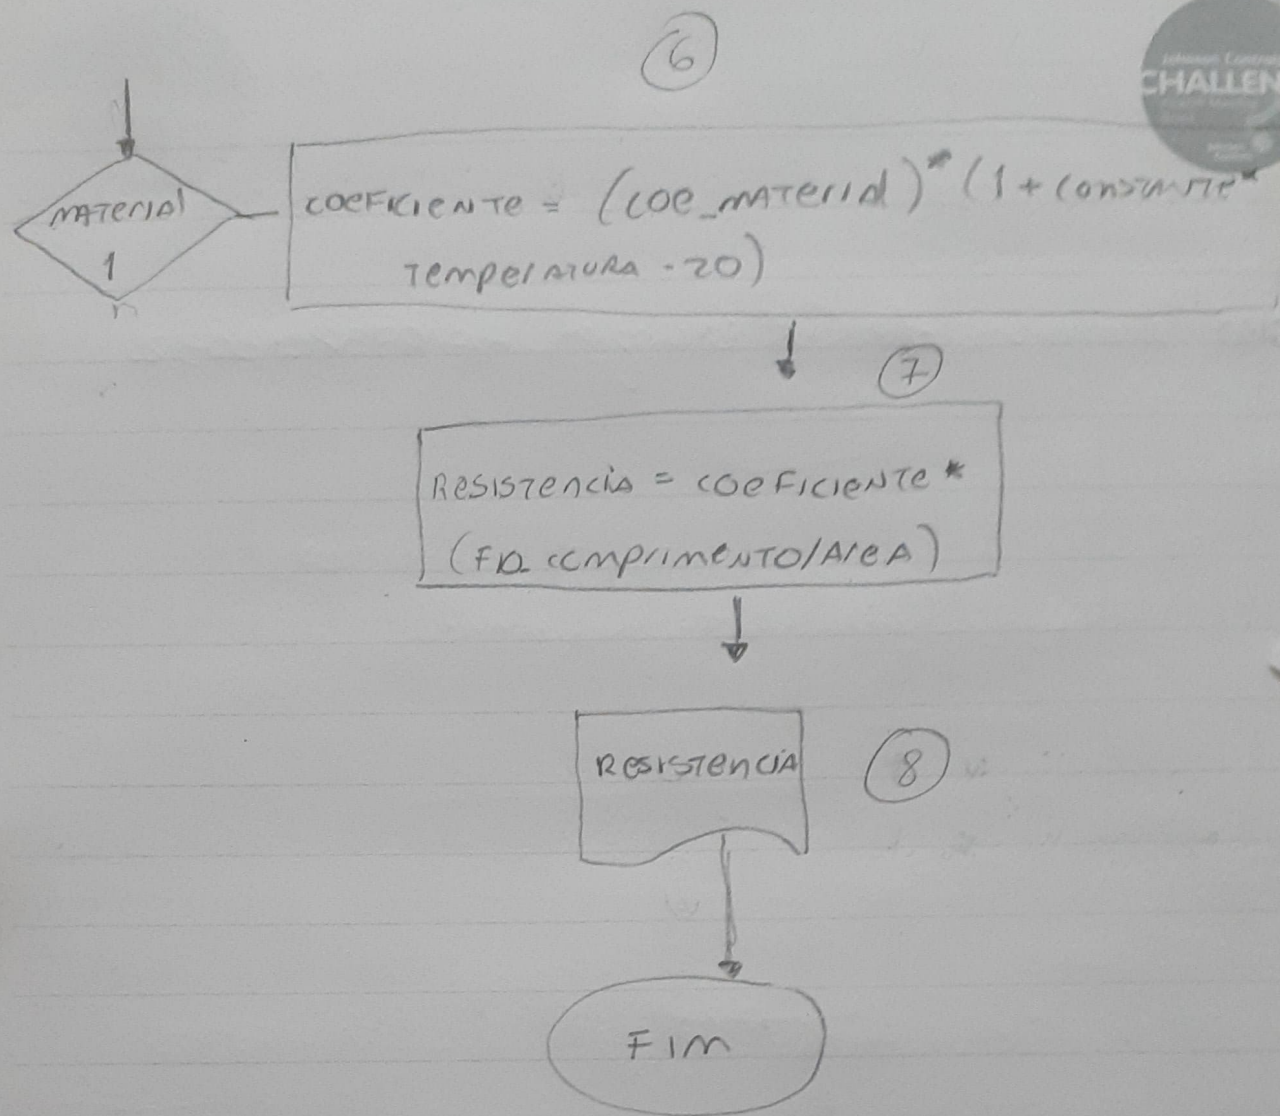 6
Johnson Controls
CHALLEN
MATERIAL
1
n
COEFICIENTE = (COE_MATERIAL)* (1 + CONSTANTE*
TEMPERATURA - 20)
7
RESISTENCIA = COEFICIENTE *
(FIO_COMPRIMENTO/AREA)
RESISTENCIA
8
FIM